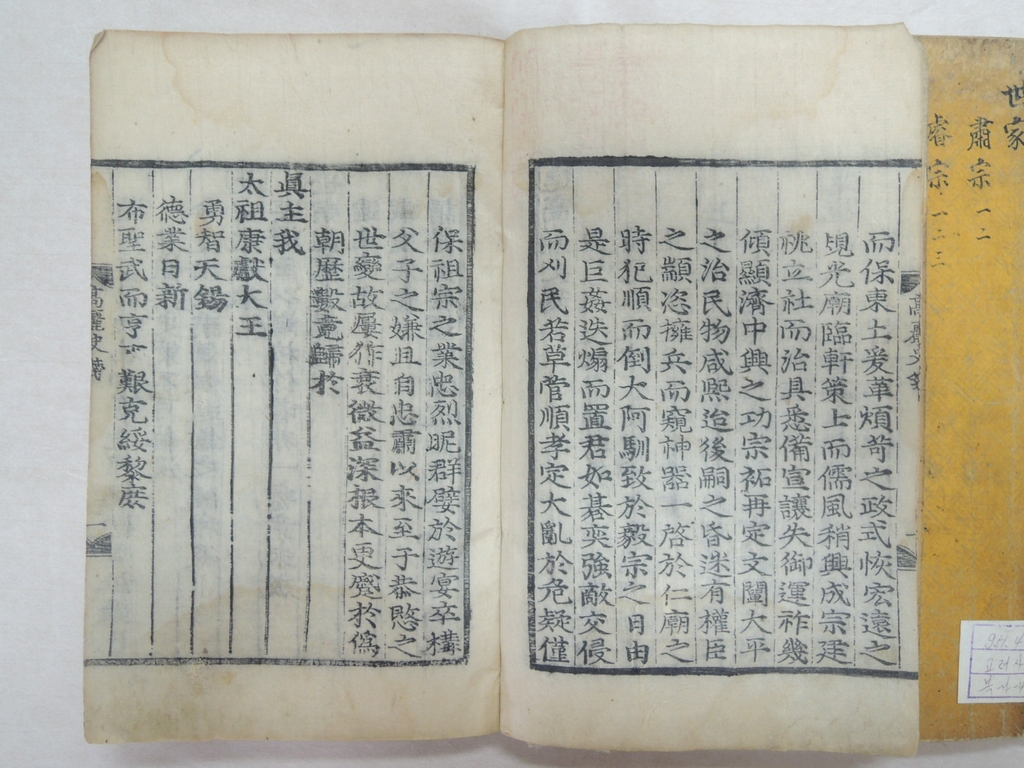 世家
肅宗 一 二
睿宗 一 二 三
而保東土爰革煩苛之政式恢宏遠之
規光廟臨軒策士而儒風稍興成宗建
祧立社而治具悉備宣讓失御運祚幾
傾顯濟中興之功宗祏再定文闡大平
之治民物咸熙迨後嗣之昏迷有權臣
之顓恣擁兵而窺神器一啓於仁廟之
時犯順而倒大阿馴致於毅宗之日由
是巨姦迭煽而置君如碁奕強敵交侵
而刈民若草菅順孝定大亂於危疑僅
保祖宗之業忠烈昵群嬖於遊宴卒構
父子之嫌且自忠肅以來至于恭愍之
世變故屢作衰微益深根本更蹙於僞
朝歷數竟歸於
眞主我
太祖康獻大王
勇智天錫
德業日新
布聖武而亨屯艱克綏黎庶
高麗史箋
一